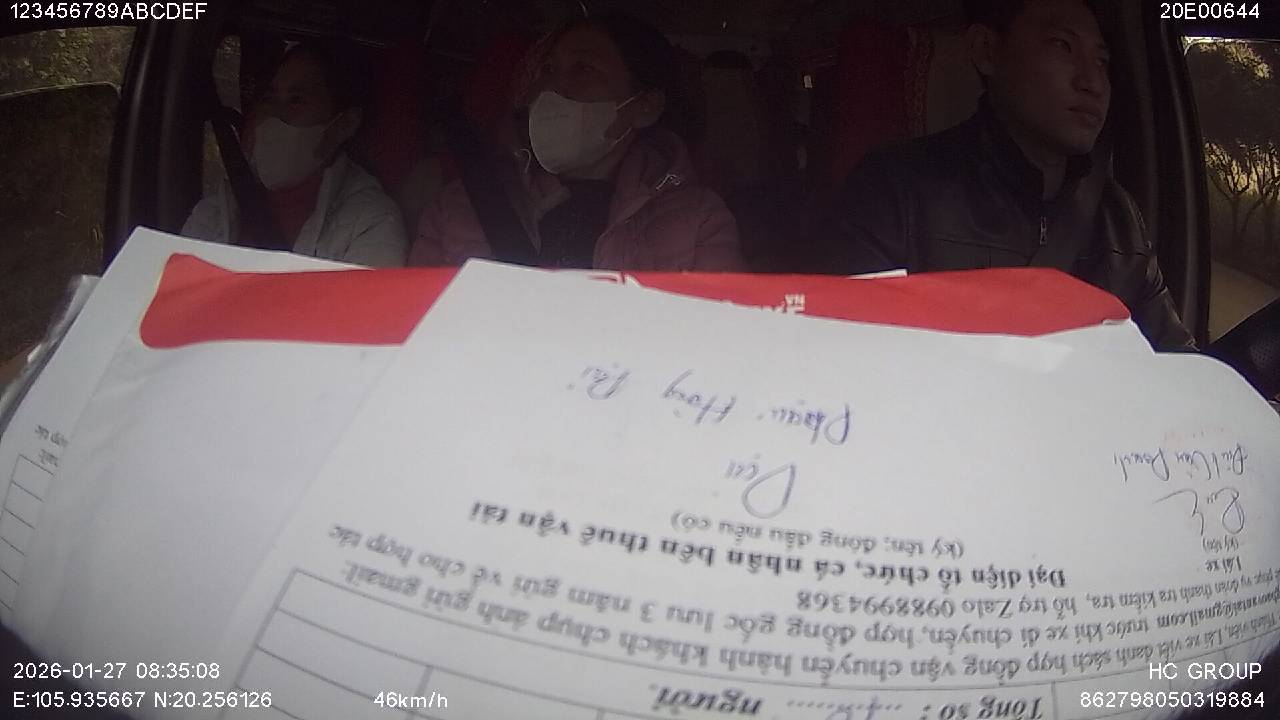 123456789ABCDEF
20E00644
Tổng số : ........ người.
viết danh sách hợp đồng vận chuyển hành khách chụp ảnh gửi gmail:
trước khi xe di chuyển, hợp đồng gốc lưu 3 năm gửi về cho hợp tác
phục vụ đoàn thanh tra kiểm tra, hỗ trợ Zalo 0988994368
Đại diện tổ chức, cá nhân bên thuê vận tải
(ký tên; đóng dấu nếu có)
Lái xe
(ký tên)
Phạm Hồng
2026-01-27 08:35:08
E:105.935667 N:20.256126
46km/h
HC GROUP
862798050319884